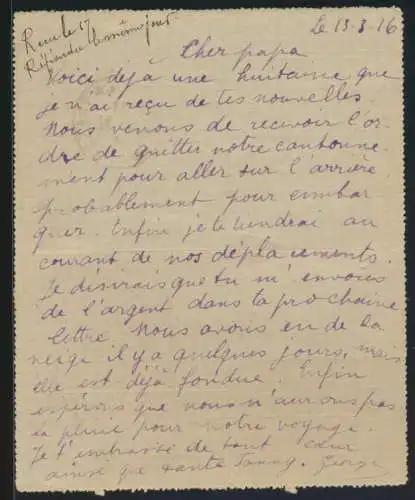 Reçu le 17
Répondu le même jour
Le 13-3-16
Cher papa
Voici déjà une huitaine que
je n'ai reçu de tes nouvelles.
Nous venons de recevoir l'or
dre de quitter notre cantonne
ment pour aller sur l'arrière
probablement pour embar
quer. Enfin je te tiendrai au
courant de nos déplacements.
Je désirais que tu m'envoies
de l'argent dans ta prochaine
lettre. Nous avons eu de la
neige il y a quelques jours, mais
elle est déjà fondue. Enfin
espérons que nous n'aurons pas
la pluie pour notre voyage.
Je t'embrasse de tout cœur
ainsi que tante Fanny. George